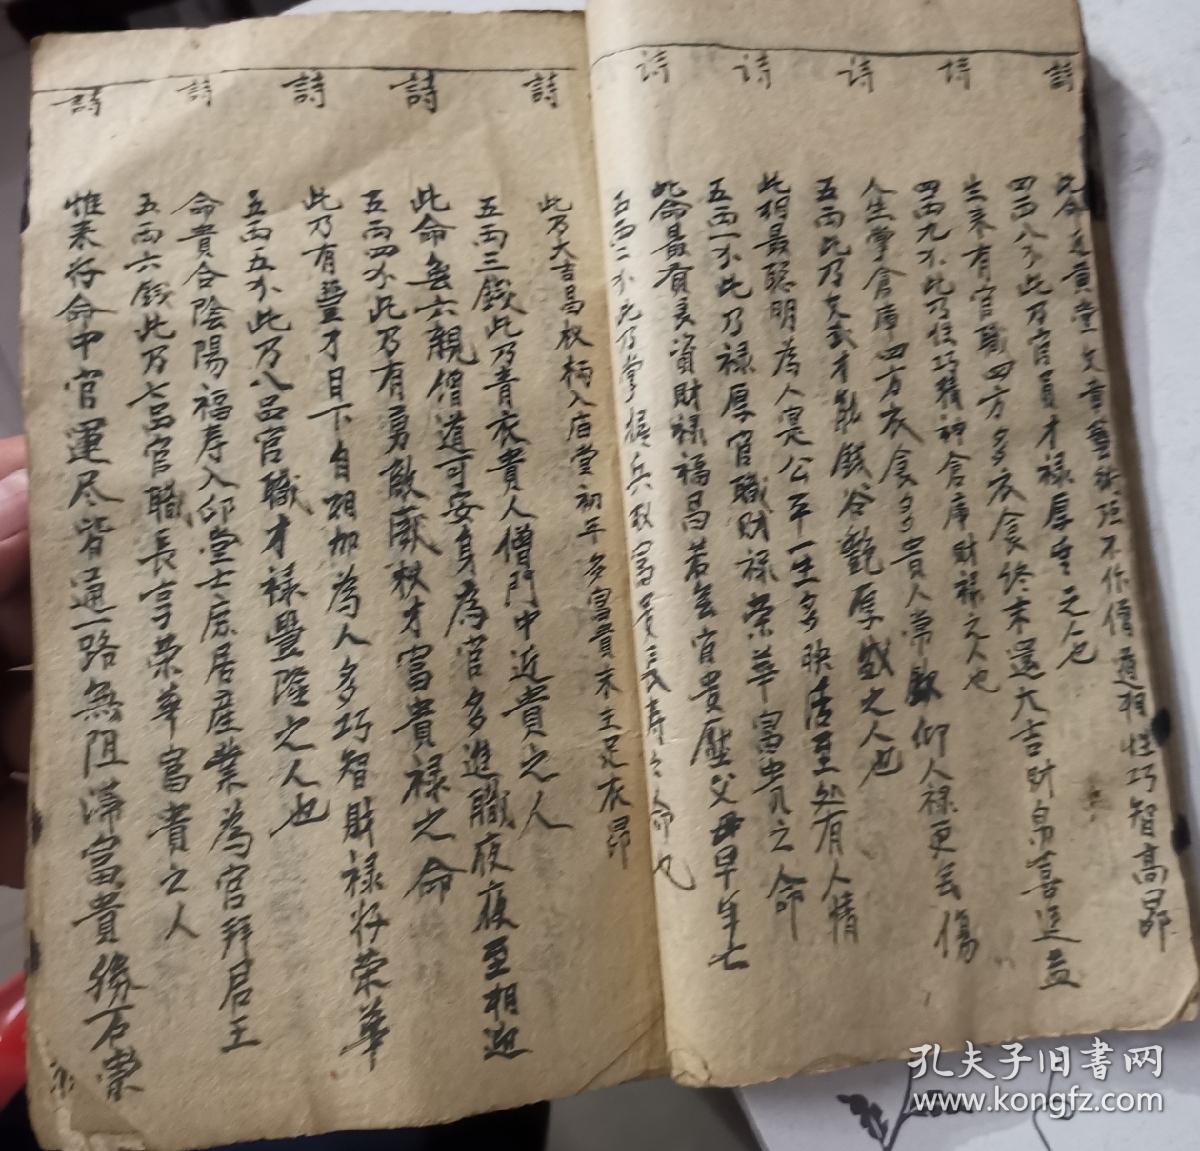 詩
此命 黃堂文章藝術強不作僧道相性巧智高昂
四両八分此乃官員才禄厚重之人也
詩
生来有官職四方多衣食終末還大吉財帛喜進益
四両九分此乃性巧精神倉庫財禄之人也
詩
人生掌倉庫四方衣食多貴人常歡仰人禄更無傷
五両此乃文武才能錢谷豔厚盛之人也
诗
此相最聪明為人寔公平一生多快活至処有人情
五両一分此乃禄厚官職財禄荣華富贵之命
诗
此命最有良資財禄福昌若無官贵壓父母早年亡
五両二分此乃掌握兵权富贵长寿之命也
詩
此乃大吉昌权柄入庙堂初年多富貴末主足衣昂
五両三錢此乃青衣貴人僧門中近貴之人
詩
此命無六親僧道可安身為官多進職夜夜至相迎
五両四分此乃有勇敵厰权才富貴禄之命
詩
此乃有豊才目下自相加為人多巧智財禄将荣華
五両五分此乃八品官職才禄豐隆之人也
詩
命貴合陰陽福寿入邱堂士宸居産業為官拜君王
五両六錢此乃七品官職長享荣華富貴之人
詩
惟来将命中官運尽皆通一路無阻滞富貴勝石崇
孔夫子旧书网
www.kongfz.com